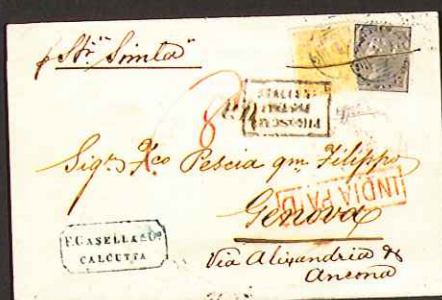 p Str "Simla"
PIROSCAFI
POSTALI
ITALIANI
Sigr Fco Pescia qm Filippo
INDIA PAID
Genova
F. CASELLA & Co
CALCUTTA
Via Alixandria &
Ancona